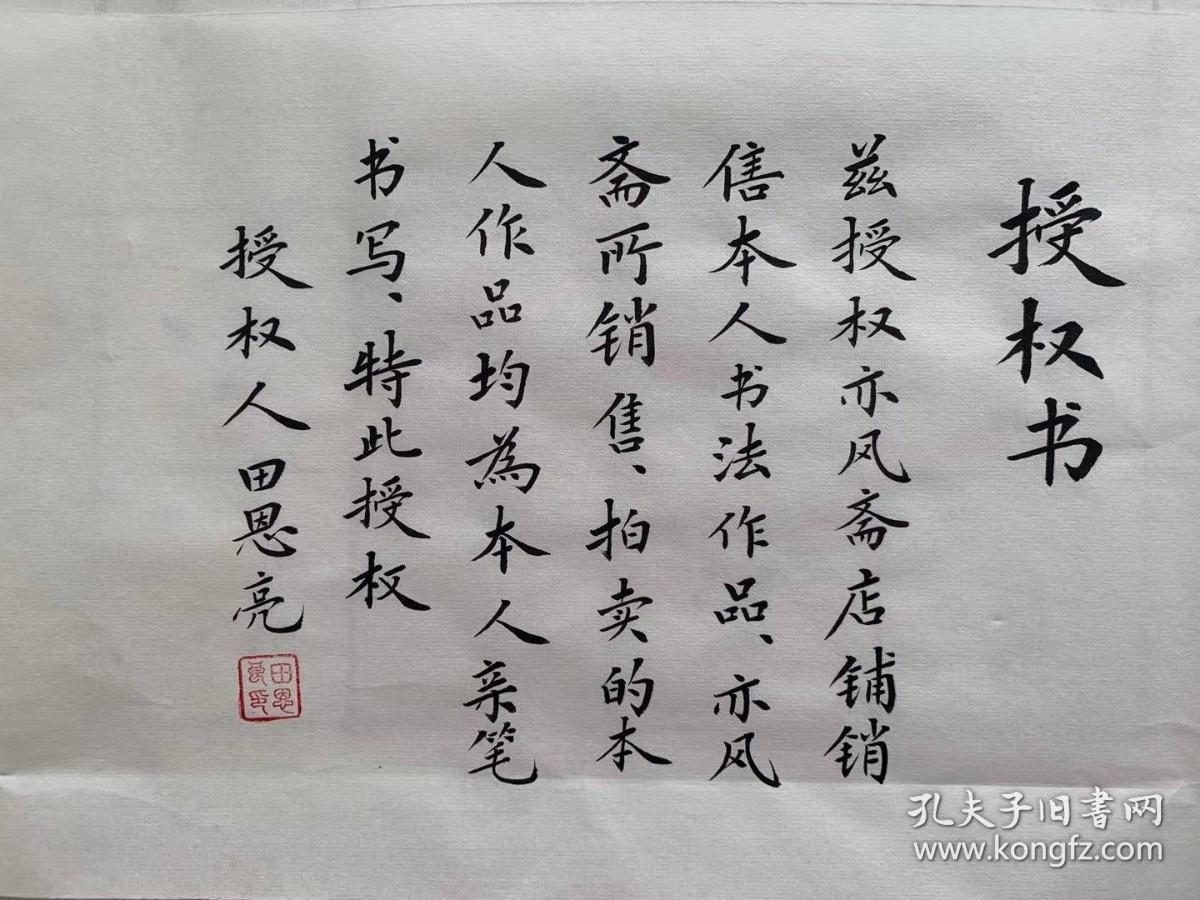 授权书
兹授权亦风斋店铺销
售本人书法作品、亦风
斋所销售、拍卖的本
人作品均為本人亲笔
书写、特此授权
授权人田恩亮
田恩亮印
孔夫子旧書网
www.kongfz.com